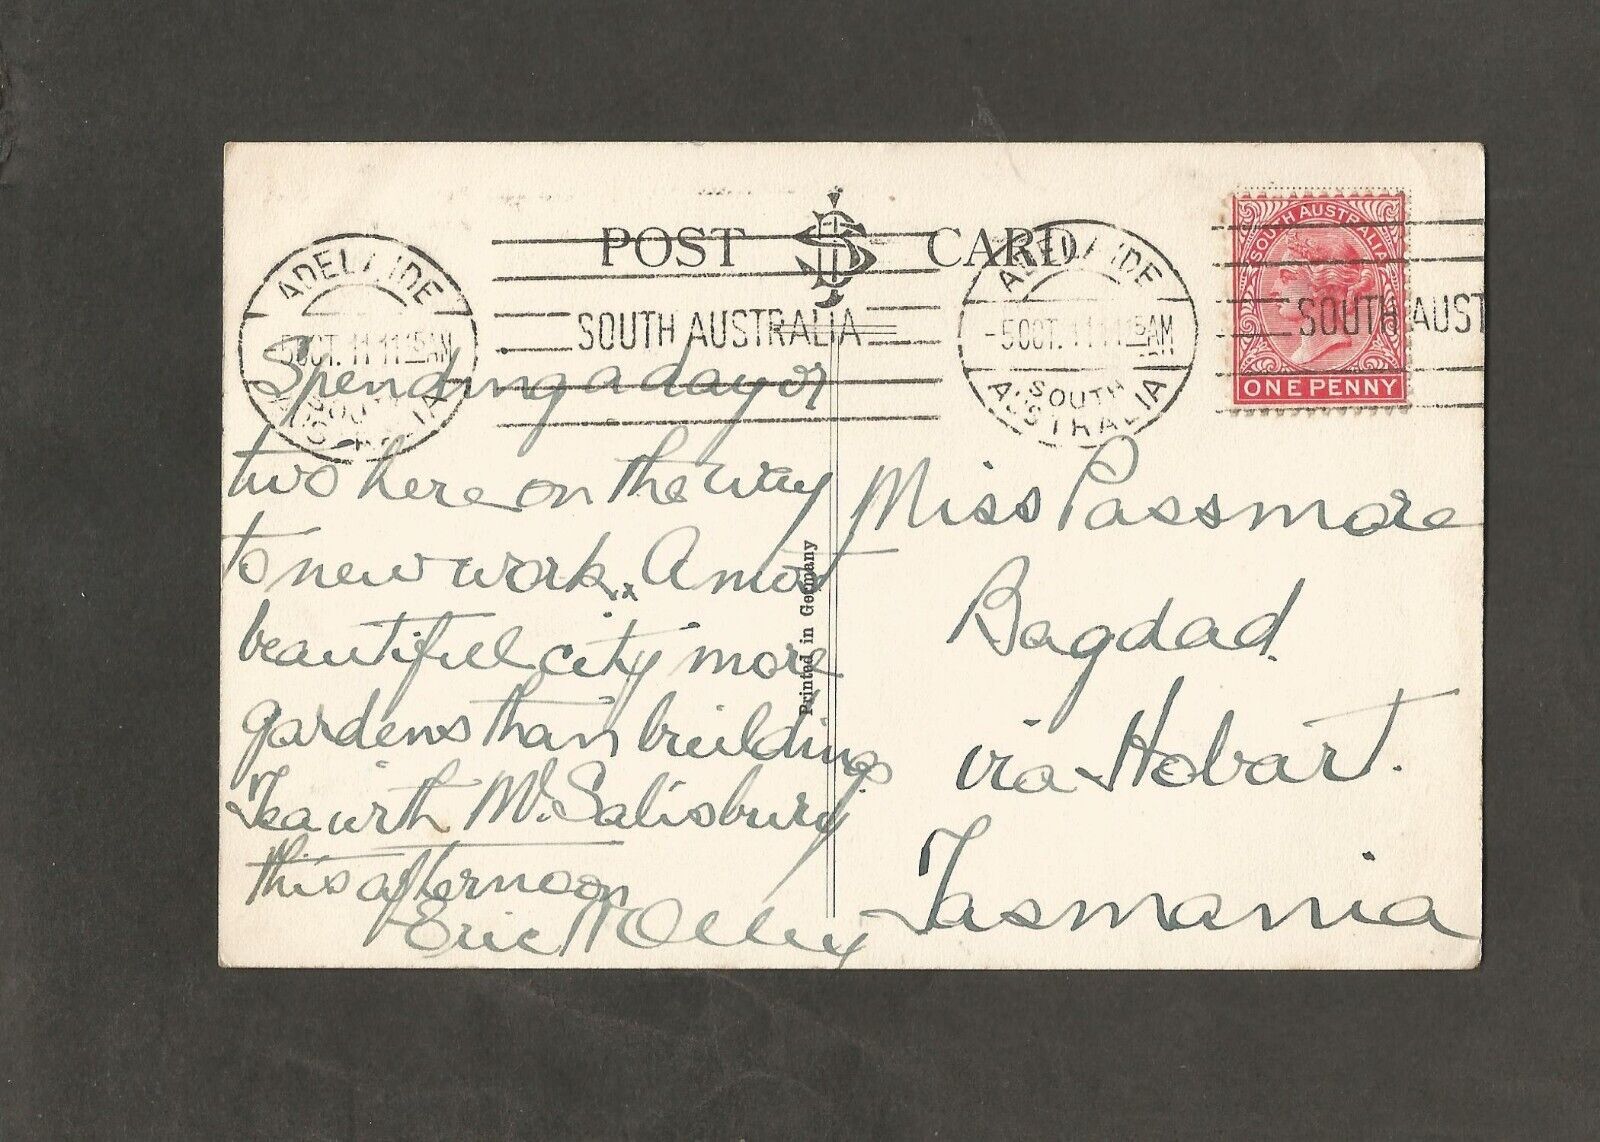 POST CARD
ADELAIDE
5 OCT. 11 11 15 AM
SOUTH
AUSTRALIA
SOUTH AUSTRALIA
ADELAIDE
-5 OCT. 11 11 15 AM
SOUTH
AUSTRALIA
SOUTH AUST
SOUTH AUSTRALIA
ONE PENNY
Spending a day or
two here on the way
to new work. A most
beautiful city more
gardens than buildings
Tea with Mr. Salisbury
this afternoon
Eric
Printed in Germany
Miss Passmore
Bagdad
via Hobart.
Tasmania